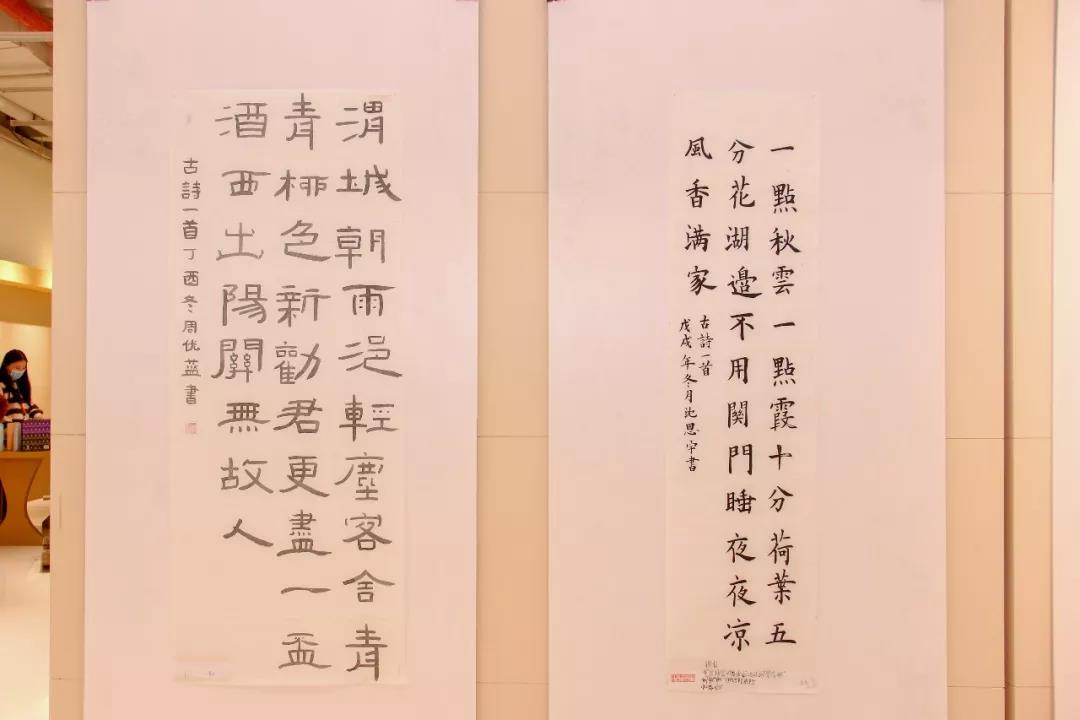 渭城朝雨浥輕塵客舍青
青柳色新勸君更盡一盃
酒西出陽關無故人
古詩一首丁酉冬周書
一點秋雲一點霞十分荷葉五
分花湖邊不用関門睡夜夜凉
風香满家
古詩一首
戊戌年冬月沈思宇書